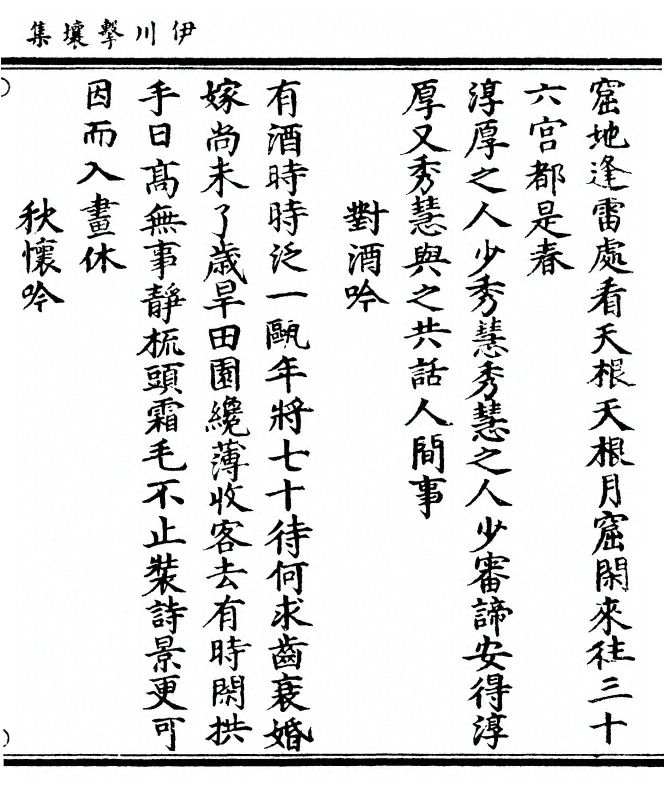 伊川擊壤集
窟地逢雷處看天根天根月窟閑來往三十
六宮都是春
淳厚之人少秀慧秀慧之人少審諦安得淳
厚又秀慧與之共話人間事
對酒吟
有酒時時泛一甌年將七十待何求齒衰婚
嫁尚未了歲旱田園纔薄收客去有時閑拱
手日髙無事靜梳頭霜毛不止裝詩景更可
因而入畫休
秋懷吟